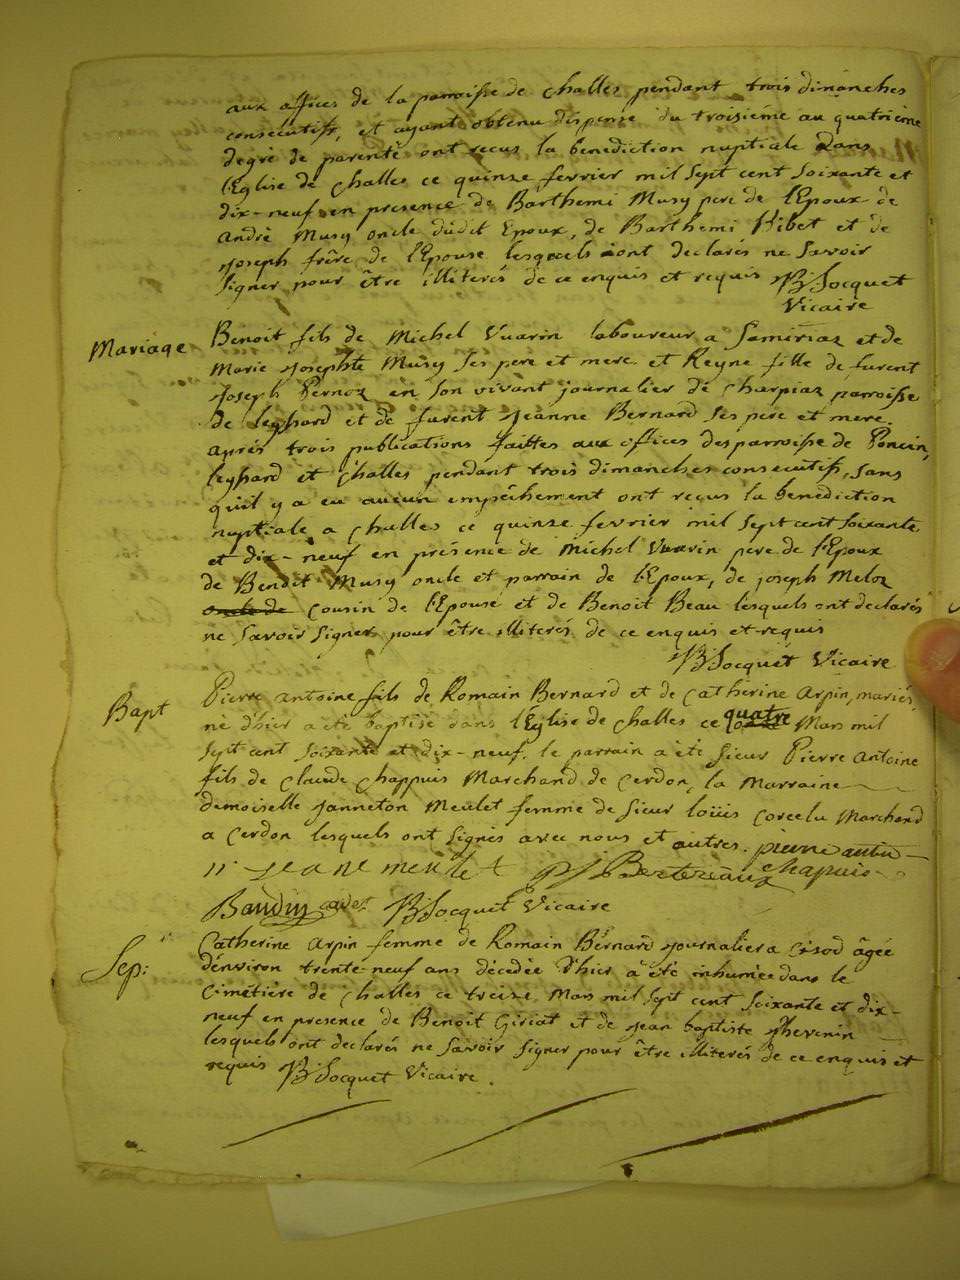 aux offices de la parroisse de challes pendant trois dimanches
consecutifs, et ayant obtenu dispense du troisiéme au quatriéme
degré de parenté ont recus la benediction nuptiale dans
l'Eglise de challes ce quinze fevrier mil sept cent soixante et
dix-neuf en presence de Barthemi Musy pere de l'Epoux de
andré Musy oncle dudit Epoux, de Barthemi Ribet et de
joseph frére de l'Epouse lesquels ont declarés ne savoir
signer pour être illiterés de ce enquis et requis B Socquet
Vicaire
Mariage Benoit fils de Michel Vuarin laboureur a Samiriaz et de
Marie josephte Musy ses pere et mere et Reyne fille de furent
joseph Pernoz en son vivant journalier de charpiaz parroisse
de leyssard et de furent jeanne Bernard ses pere et mere
aprés trois publications faittes aux offices des parroisse de Poncin,
leyssard et challes pendant trois dimanches consecutifs, sans
qu'il y a eu aucun empéchement ont recus la benediction
nuptiale a challes ce quinze fevrier mil sept cent soixante
et dix-neuf en présence de Michel Vuarin pere de l'Epoux
de Benoit Musy oncle et parrain de l'Epoux, de joseph Meloz
oncle de cousin de l'Epouse et de Benoit Beau lesquels ont declarés
ne savoir signer pour être illiterés de ce enquis et requis
B Socquet Vicaire
Bapt Pierre antoine fils de Romain Bernard et de Catherine Arpin, mariés,
né d'hier a été baptisé dans l'Eglise de challes ce quatre Mars mil
sept cent soixante et dix-neuf. le parrain a été sieur Pierre antoine
fils de claude chappuis Marchand de Cerdon, la Marraine
demoiselle janneton Meulet femme de sieur loüis Corcelu Marchand
a Cerdon lesquels ont signés avec nous et autres. pierre antoi-
jeane meulet Bertereaux chapuis
Baudin cadet B Socquet Vicaire
Sep: Catherine Arpin femme de Romain Bernard journalier a Cisod âgée
d'énviron trente neuf ans décedée d'hier a été inhumée dans le
cimétiére de challes ce treize Mars mil sept cent soixante et dix-
neuf en presence de Benoit Giriat et de jean baptiste Thevenin
lesquels ont declarés ne savoir signer pour être illiterés de ce enquis et
requis B Socquet Vicaire.